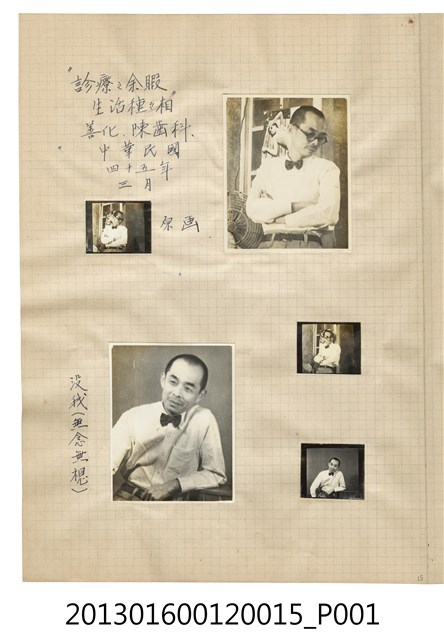 "診療之余暇"
生活種々相"
善化、陳歯科、
中華民國
四十五年
三月
原画
没我(無念無想)
15
201301600120015_P001